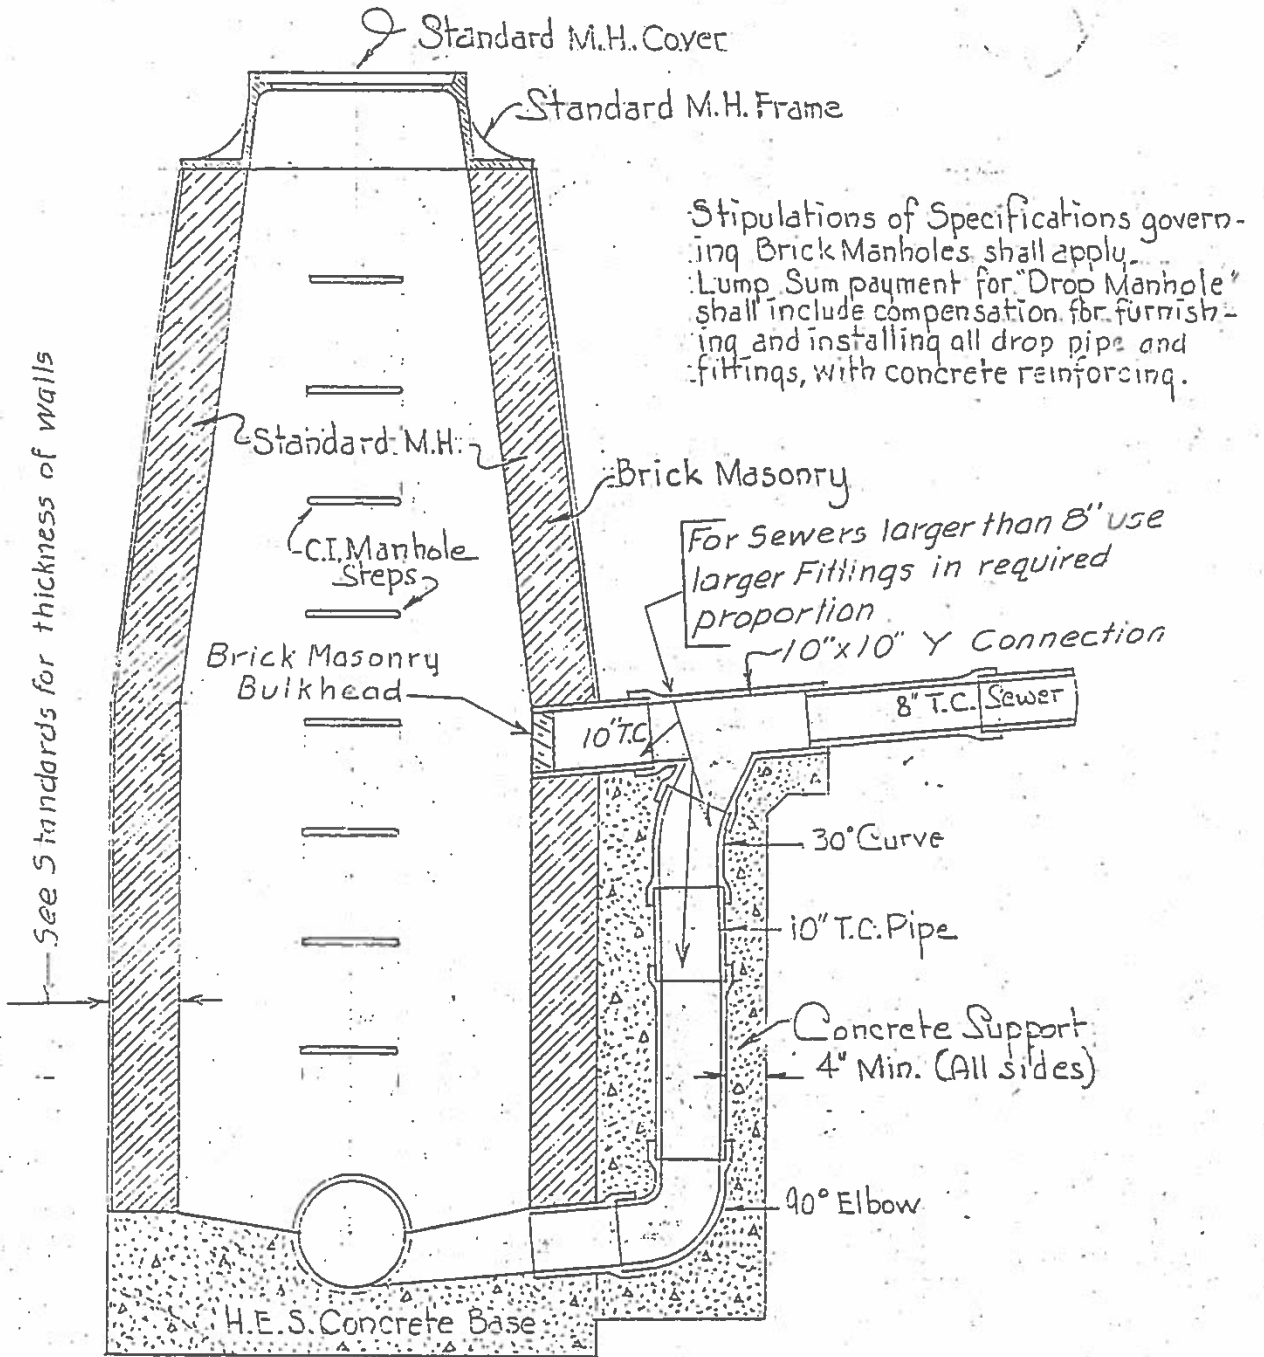 Standard M.H. Cover
Standard M.H. Frame
Stipulations of Specifications govern-
ing Brick Manholes shall apply.
Lump Sum payment for "Drop Manhole"
shall include compensation for furnish-
ing and installing all drop pipe and
fittings, with concrete reinforcing.
See Standards for thickness of walls
Standard M.H.
Brick Masonry
C.I. Manhole
Steps
For Sewers larger than 8" use
larger Fittings in required
proportion
10"x10" Y Connection
Brick Masonry
Bulkhead
10" T.C.
8" T.C. Sewer
30° Curve
10" T.C. Pipe
Concrete Support
4" Min. (All sides)
90° Elbow
H.E.S. Concrete Base